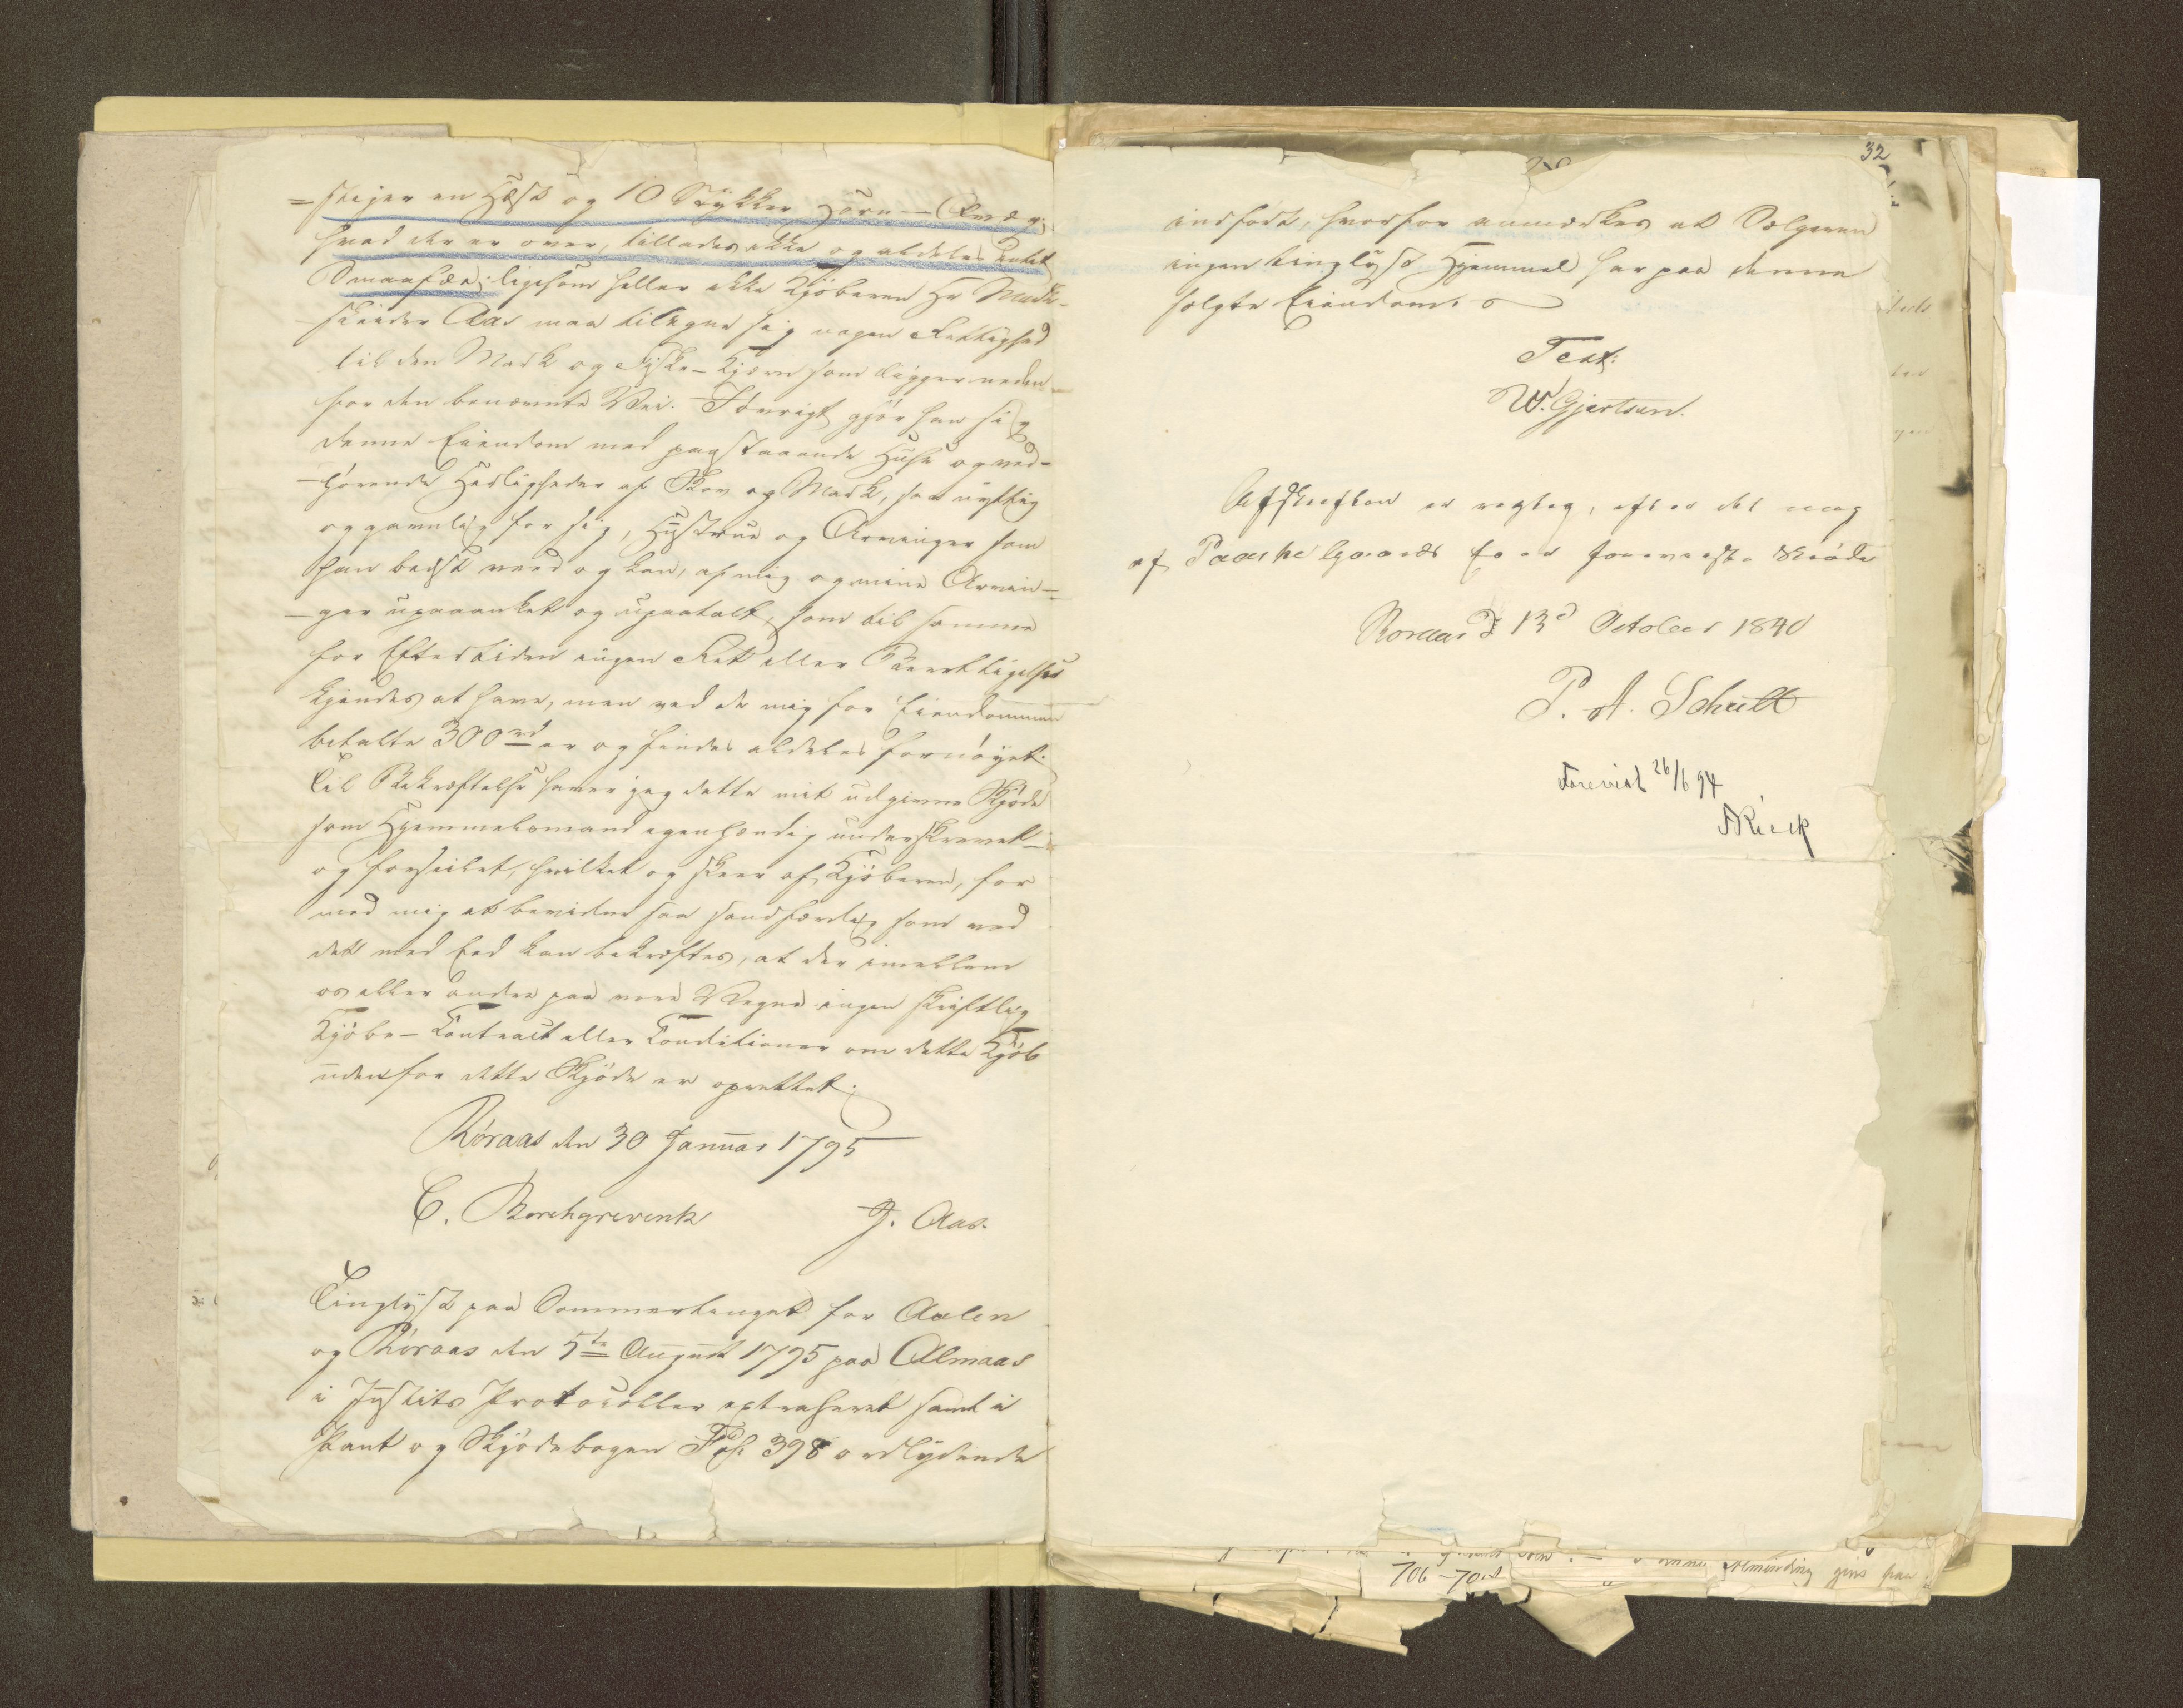 = stiger en Hest og 10 Stykker Horn-Qvæg;
hvad der er over, tillades ikke og aldeles intet
Smaafæe; ligesom heller ikke Kjøberen Hr Mark-
skeider Aas maa tilegne sig nogen Rettighed
til den Mark og Fiske-Kjærn som ligger neden-
for den benævnte Vei. Iøvrigt gjør han sig
denne Eiendom med paastaaende Huse og ved-
-hørende Herligheder af Skov og Mark, saa nyttig
og gavnlig for sig, Hustrue og Arvinger som
han bedst veed og kan, af mig og mine Arvin-
-ger upaaanket og upaatalt, som til samme
for Eftertiden ingen Ret eller Berettigelse
kjendes at have, men ved de mig for Eiendommen
betalte 300 rd er og findes aldeles fornøyet.
Til Bekræftelse haver jeg dette mit udgivne Skjøde
som Hjemmelsmand egenhændig underskrevet
og forseilet, hvilket og skeer af Kjøberen, for
med mig at bevidne saa sandfærdig som ved
det med Eed kan bekræftes, at der imellem
os eller andre paa vore Vegne ingen skriftlig
Kjøbe-Contract eller Conditioner om dette Kjøb
udenfor dette Skjøde er oprettet.
Røraas den 30 Januar 1795
C. Borchgrevink J. Aas.
Tinglyst paa Sommertinget for Aalen
og Røraas den 5te August 1795 paa Almaas
i Justits Protocollen extraheret samt i
Pant og Skjødebogen Fol. 398 ordlydende
32
indført, hvorfor anmerkes at Sælgeren
ingen tinglyst Hjemmel har paa denne
solgte Eiendom.
Test:
W. Gjertsen.
Afskriften er rigtig, efter det mig
af foreviiste Skiøde
Roraas d 13d October 1840
P. A. Schult
Forevist 26/6 94
Alminding
706-70